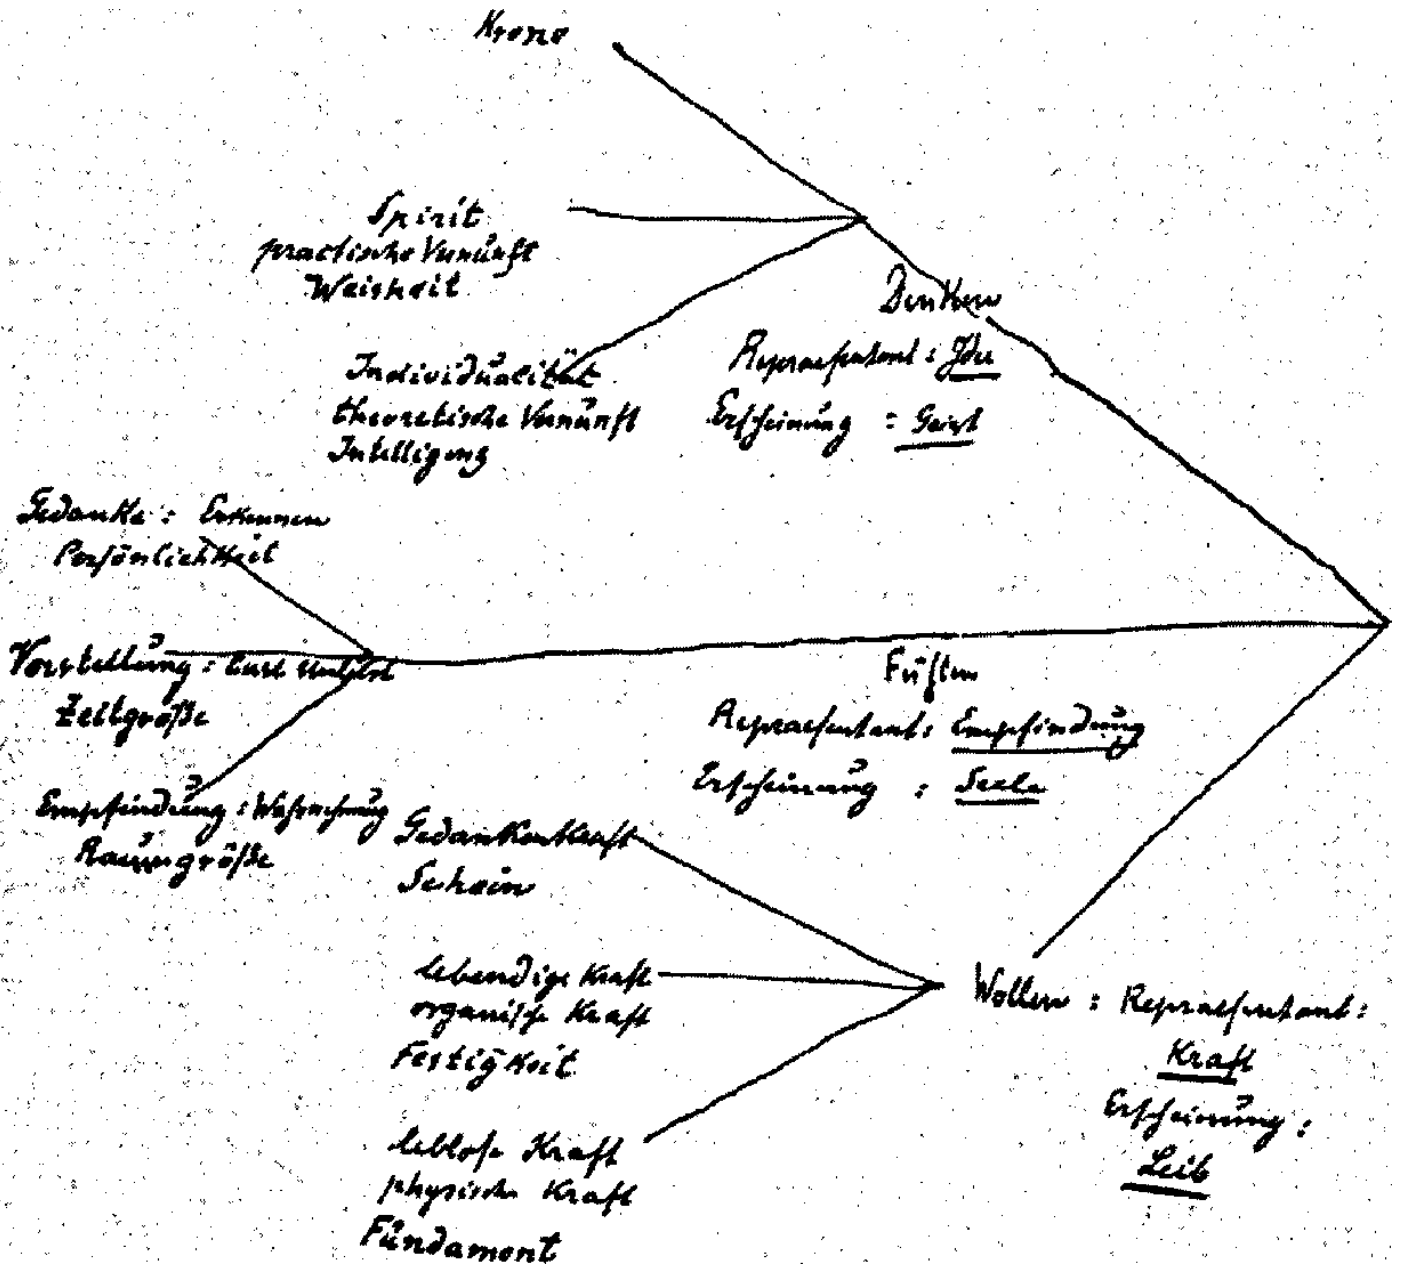 Krone
Spirit
practische Vernunft
Weisheit
Denken
Individualität
theoretische Vernunft
Intelligenz
Repraesentant: Idee
Erscheinung: Geist
Gedanke: Erkennen
Persönlichkeit
Vorstellung:
Zeitgröße
Empfindung: Wahrnehmung
Raumgröße
Fühlen
Repraesentant: Empfindung
Erscheinung: Seele
Gedankenkraft
Schein
lebendige Kraft
organische Kraft
Festigkeit
leblose Kraft
physische Kraft
Fundament
Wollen: Repraesentant:
Kraft
Erscheinung:
Leib